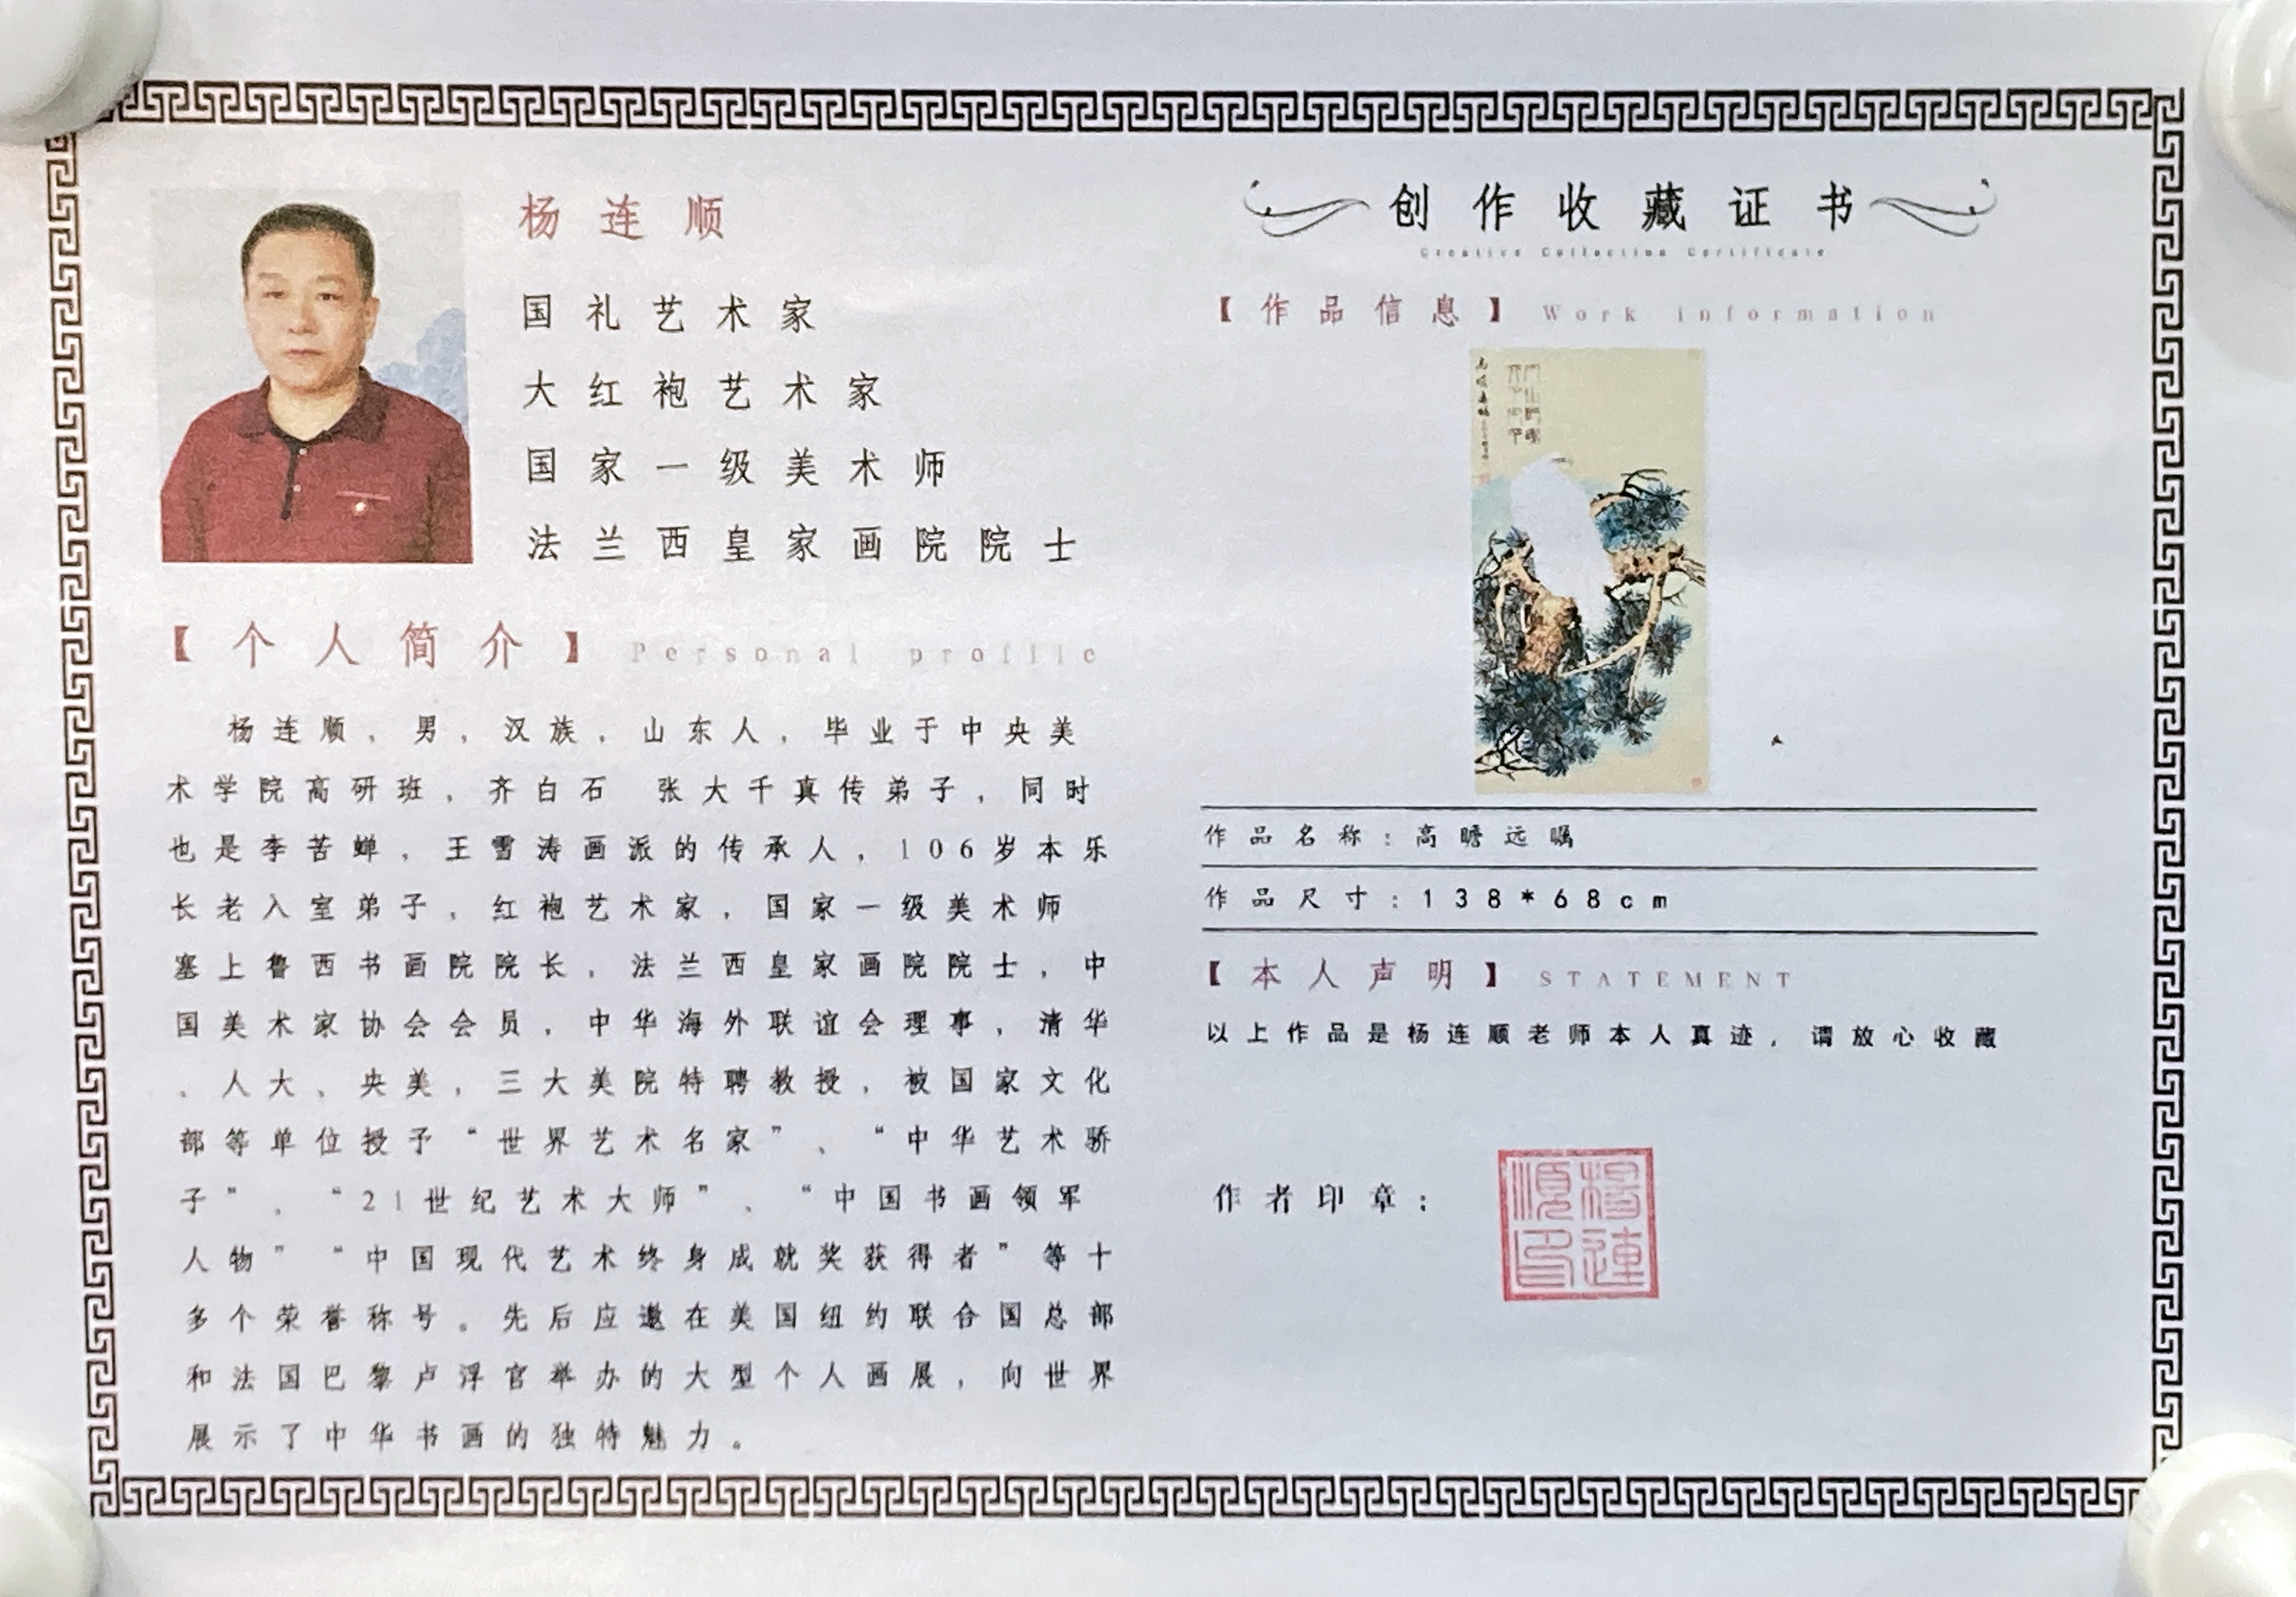 杨连顺
国礼艺术家
大红袍艺术家
国家一级美术师
法兰西皇家画院院士
【个人简介】Personal profile
杨连顺，男，汉族，山东人，毕业于中央美
术学院高研班，齐白石 张大千真传弟子，同时
也是李苦蝉，王雪涛画派的传承人，106岁本乐
长老入室弟子，红袍艺术家，国家一级美术师
塞上鲁西书画院院长，法兰西皇家画院院士，中
国美术家协会会员，中华海外联谊会理事，清华
、人大、央美，三大美院特聘教授，被国家文化
部等单位授予“世界艺术名家”、“中华艺术骄
子”、“21世纪艺术大师”、“中国书画领军
人物”“中国现代艺术终身成就奖获得者”等十
多个荣誉称号。先后应邀在美国纽约联合国总部
和法国巴黎卢浮官举办的大型个人画展，向世界
展示了中华书画的独特魅力。
创作收藏证书
Creative Collection Certificate
【作品信息】Work information
高瞻远瞩
作品名称：高瞻远瞩
作品尺寸：138*68cm
【本人声明】STATEMENT
以上作品是杨连顺老师本人真迹，请放心收藏
作者印章：
杨連
順印